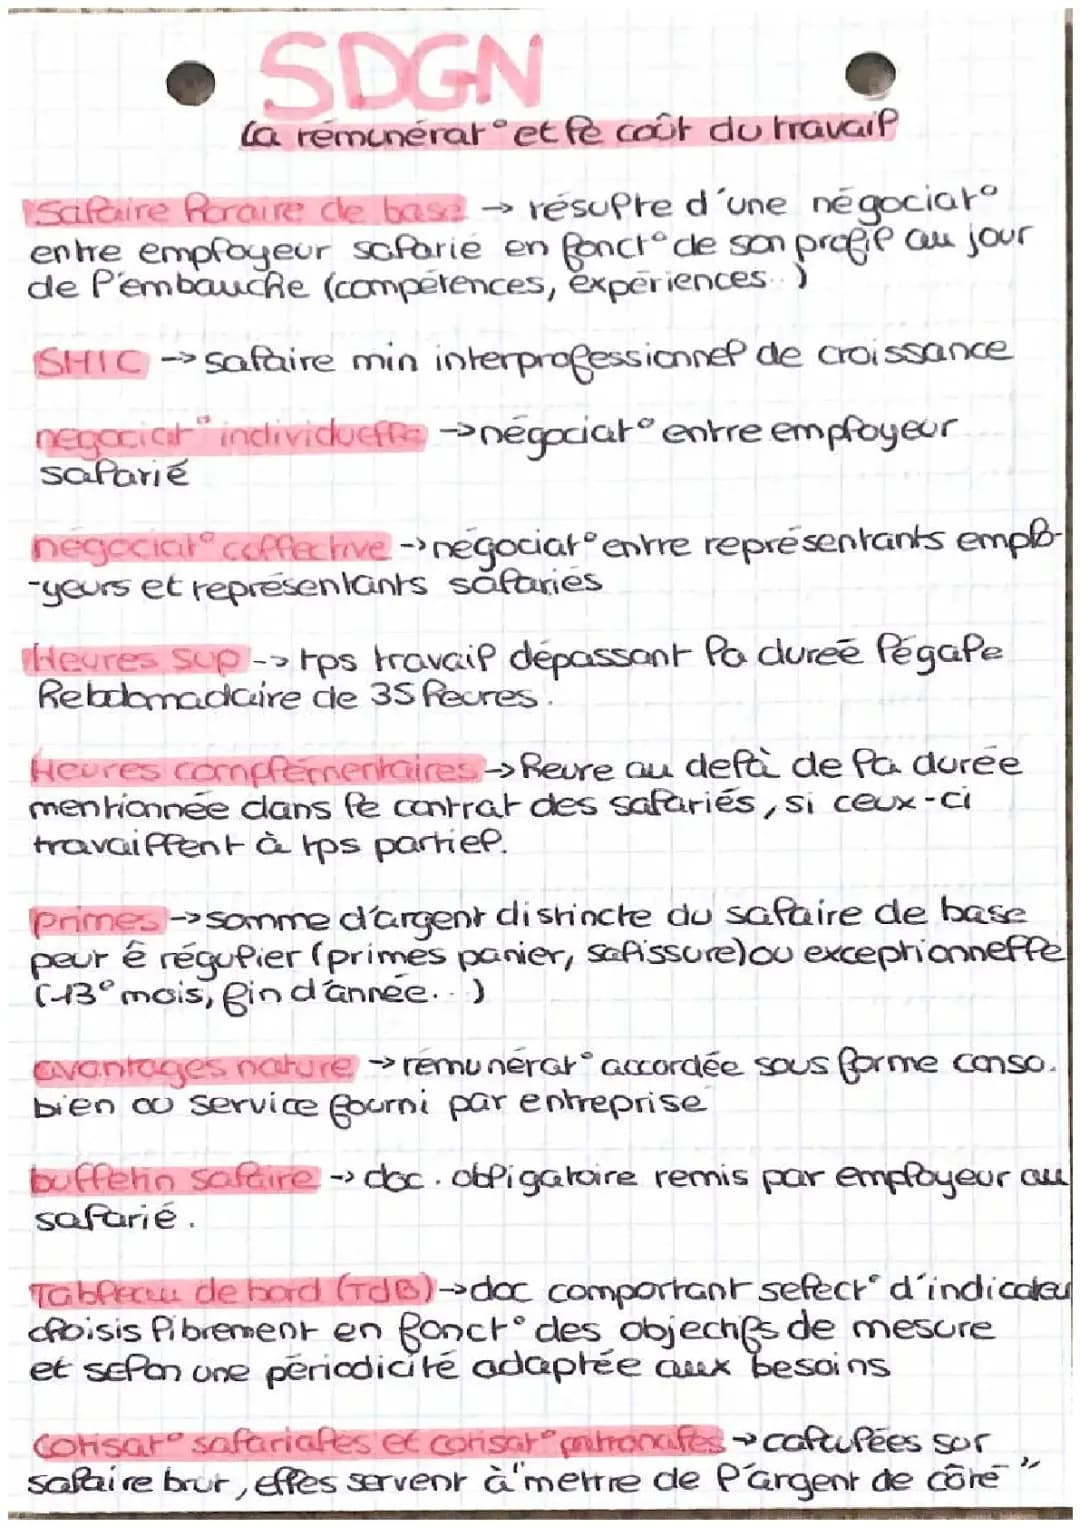 SDGN
La rémunérat° et le coût du travail
Salaire horaire de base → résulte d'une négociat°
entre employeur salarié en fonct° de son profil au jour
de l'embauche (compétences, expériences...)
SMIC → salaire min interprofessionnel de croissance
negociat° individuelle → négociat° entre employeur
salarié
négociat° collective → négociat° entre représentants emplo-
-yeurs et représentants salariés
Heures sup → tps travail dépassant la dureé légale
hebdomadaire de 35 heures.
Heures complémentaires → heure au delà de la durée
mentionnée dans le contrat des salariés, si ceux-ci
travaillent à tps partiel.
primes → somme d'argent distincte du salaire de base
peut ê régulier (primes panier, salissure) ou exceptionnelle
(13° mois, fin d'année...)
avantages nature → rémunérat° accordée sous forme conso.
bien ou service fourni par entreprise
bulletin salaire → doc. obligatoire remis par employeur au
salarié.
Tableau de bord (TdB) → doc comportant sélect° d'indicateu
choisis librement en fonct° des objectifs de mesure
et selon une périodicité adaptée aux besoins
Cotisat° salariales et cotisat° patronales → calculées sur
salaire brut, elles servent à "mettre de l'argent de côté"